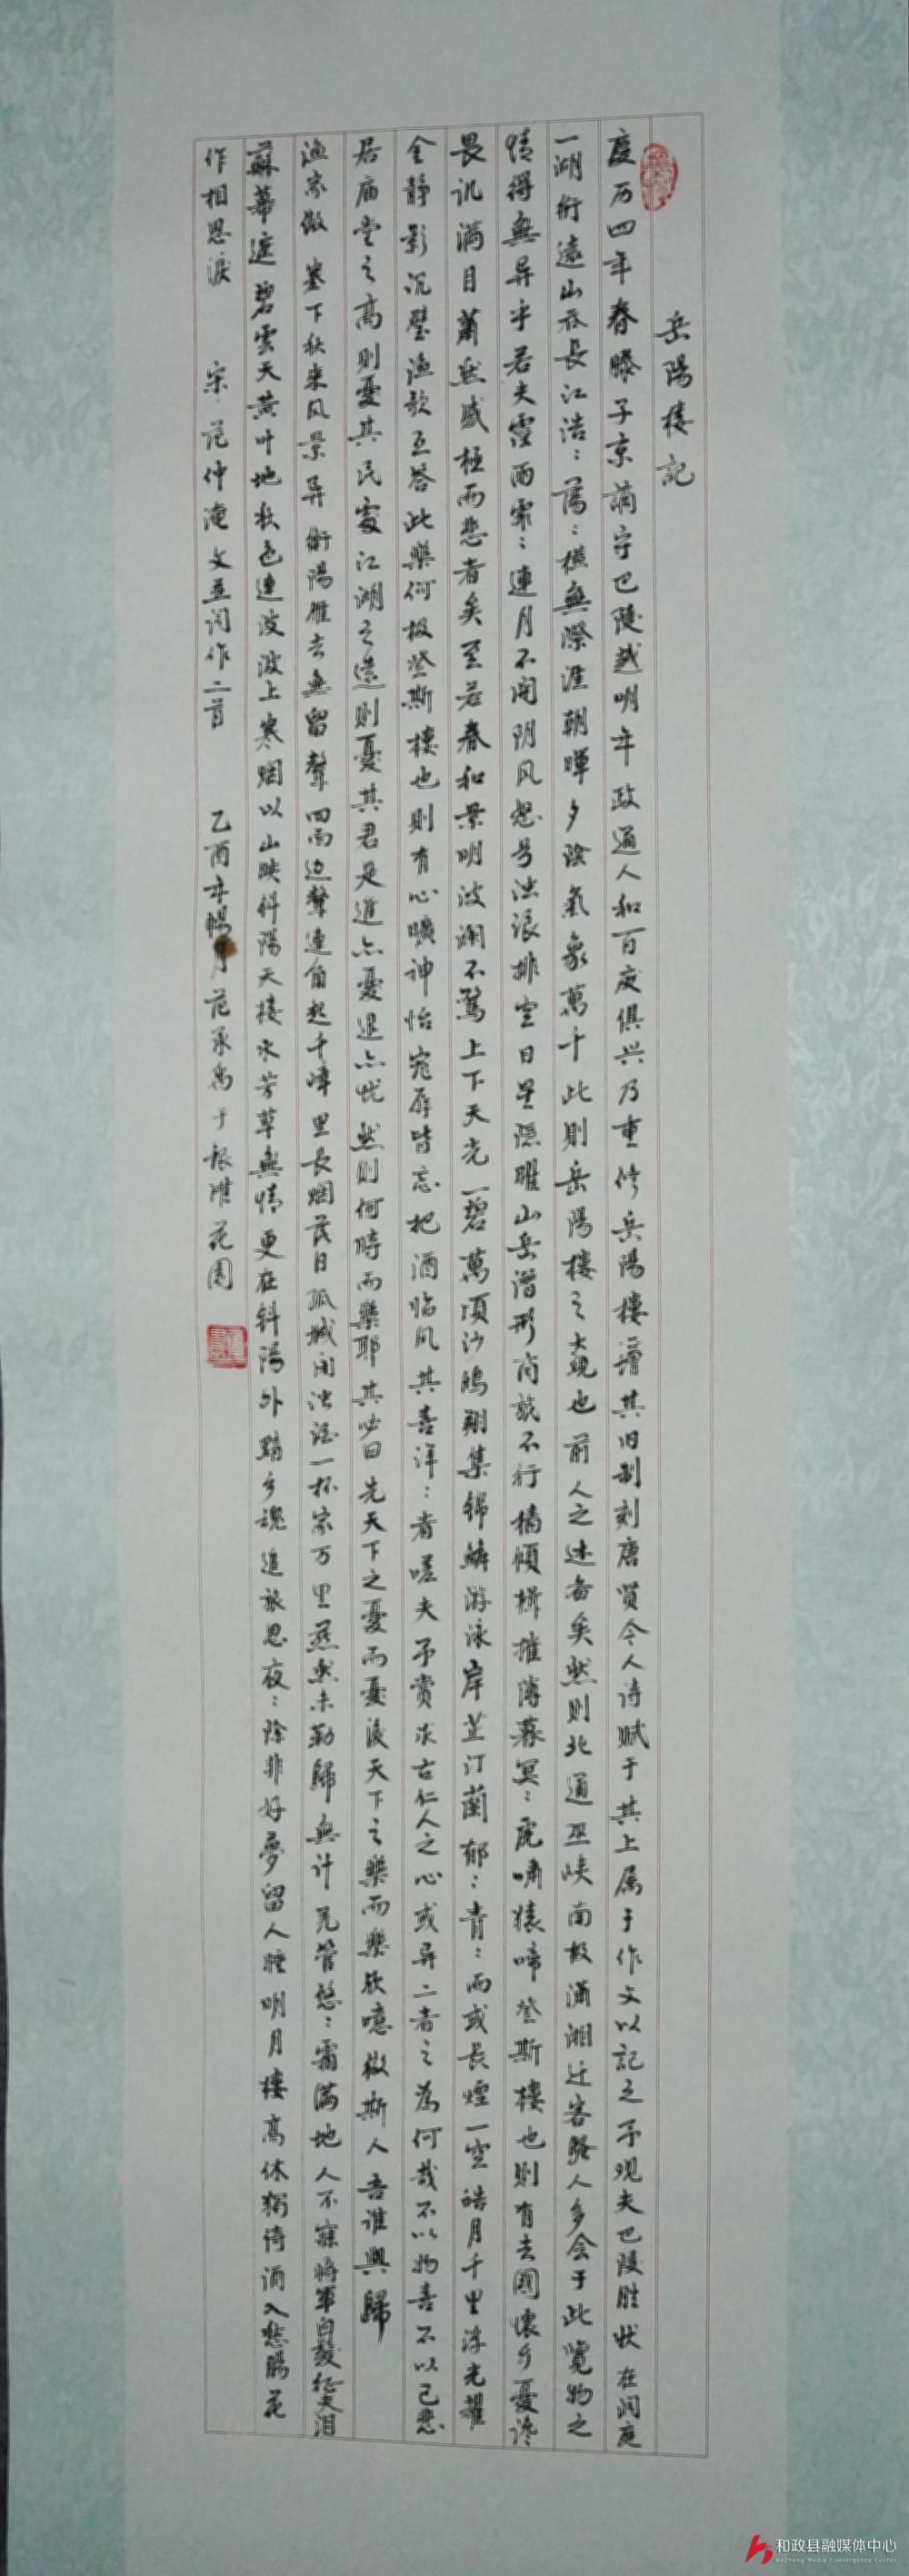 岳陽樓記
慶历四年春滕子京謫守巴陵越明年政通人和百废俱兴乃重修岳陽樓增其旧制刻唐贤今人诗赋于其上属予作文以記之予观夫巴陵胜状在洞庭
一湖衔遠山吞長江浩:蕩:橫無際涯朝暉夕陰氣象萬千此則岳陽樓之大觀也前人之述备矣然则北通巫峡南极瀟湘迁客騷人多会于此覽物之
情得無异乎若夫霪雨霏:連月不開阴风怒号浊浪排空日星隱曜山岳潛形商旅不行檣傾楫摧薄暮冥:虎嘯猿啼登斯樓也則有去國懷乡憂讒
畏讥满目蕭然感極而悲者矣至若春和景明波澜不驚上下天光一碧萬頃沙鷗翔集锦鱗游泳岸芷汀蘭郁:青:而或長煙一空皓月千里浮光耀
金静影沉璧漁歌互答此樂何极登斯樓也則有心曠神怡宠辱皆忘把酒临风其喜洋:者嗟夫予嘗求古仁人之心或异二者之為何哉不以物喜不以己悲
居庙堂之高則憂其民處江湖之遠則憂其君是進亦憂退亦忧然则何時而樂耶其必曰先天下之憂而憂後天下之樂而樂欤噫微斯人吾谁與歸
渔家傲 塞下秋来风景异衡陽雁去無留聲四面边聲連角起千嶂里長烟落日孤城闭浊酒一杯家万里燕然未勒歸無计羌管悠:霜满地人不寐將軍白髮征夫泪
蘇幕遮 碧雲天黄叶地秋色連波波上寒烟以山映斜陽天接水芳草無情更在斜陽外黯乡魂追旅思夜:除非好夢留人睡明月樓高休獨倚酒入愁腸花
作相思淚 宋·范仲淹文並词作二首 乙酉年暢月范承禹于银滩花园
和政县融媒体中心
HeZheng Media Convergence Center